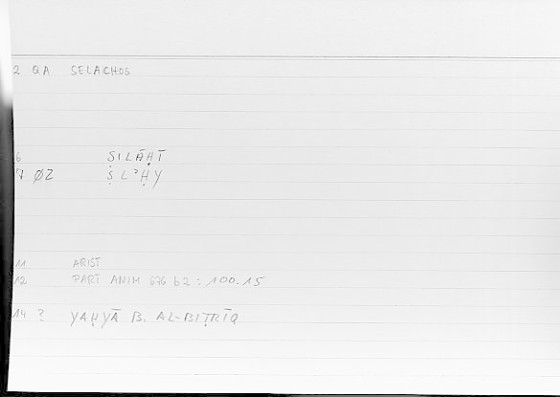 2 QA SELACHOS
6 ṢILĀḤĪ
7 ØZ ṢLʾḤY
11 ARIST
12 PART ANIM 676 b2 : 100.15
14 ? YAḤYĀ B. AL-BIṬRĪQ